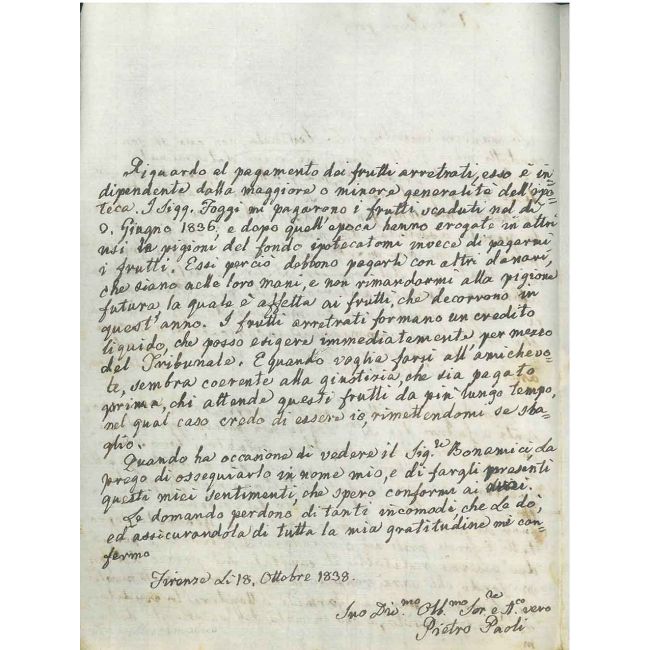 Riguardo al pagamento dai frutti arretrati, esso è in=
dipendente dalla maggiore o minore generalità dell'ipo=
teca. I Sigg. Foggi mi pagarono i frutti scaduti nel dì
9, Giugno 1836, e dopo quell'epoca hanno erogate in altri
usi le pigioni del fondo ipotecatomi invece di pagarmi
i frutti. Essi perciò debbono pagarli con altri danari,
che siano nelle loro mani, e non rimandarmi alla pigione
futura la quale è affetta ai frutti, che decorrono in
quest'anno. I frutti arretrati formano un credito
liquido, che posso esigere immediatamente per mezzo
del Tribunale. E quando voglia farsi all'amichevo=
le, sembra coerente alla giustizia, che sia pagato
prima, chi attende questi frutti da più lungo tempo,
nel qual caso credo di essere io, rimettendomi se sba=
glio.
Quando ha occasione di vedere il Sig.re Bonamici, la
prego di ossequiarlo in nome mio, e di fargli presenti
questi miei sentimenti, che spero conformi ai
Le domando perdono di tanti incomodi che Le dò,
ed assicurandola di tutta la mia gratitudine mi con=
fermo
Firenze li 18, Ottobre 1838.
Suo Div.mo Obb.mo Ser.re e A.co vero
Pietro Paoli